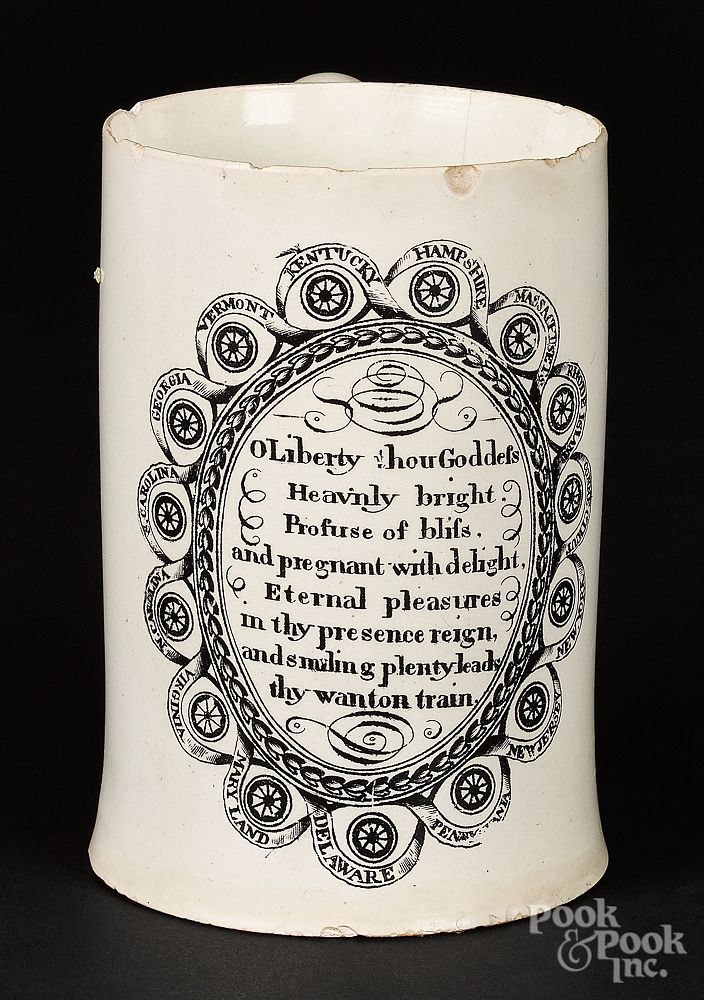 KENTUCKY
HAMPSHIRE
VERMONT
GEORGIA
S. CAROLINA
N. CAROLINA
VIRGINIA
MARYLAND
DELAWARE
NEW JERSEY
NEW YORK
O Liberty thou Goddeſs
Heav'nly bright.
Profuse of bliſs.
and pregnant with delight,
Eternal pleasures
in thy presence reign,
and smiling plenty leads
thy wanton train.
POOK
& POOK
INC.